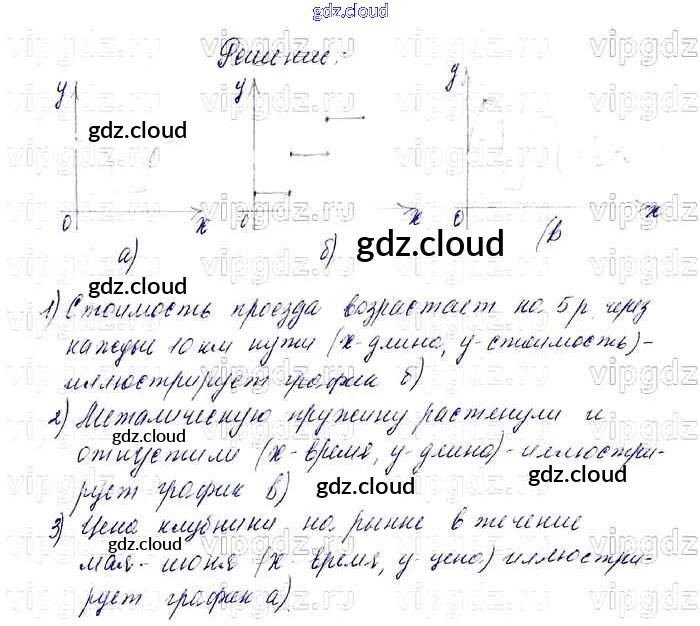 gdz.cloud
Решение:
y y y
gdz.cloud
0 x 0 x 0 x
а) б) (в
gdz.cloud
1) Стоимость проезда возрастает на 5 р. через
gdz.cloud
каждые 10 км пути (x-длина, y-стоимость)-
иллюстрирует график б)
2) Металическую пружину растенули и
gdz.cloud
отпустили (x-время, y-длина)-иллюстри-
рует график в)
gdz.cloud gdz.cloud
3) Цена клубники на рынке в течение
gdz.cloud
мая-июня (x-время, y-цена) иллюстри-
рует график а).
gdz.cloud